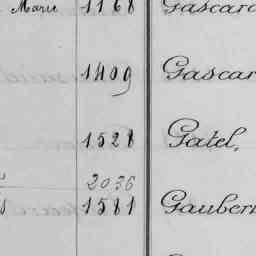 Marie 1168 Gascard
1409 Gascar
1528 Gatel,
2036
1581 Gauber